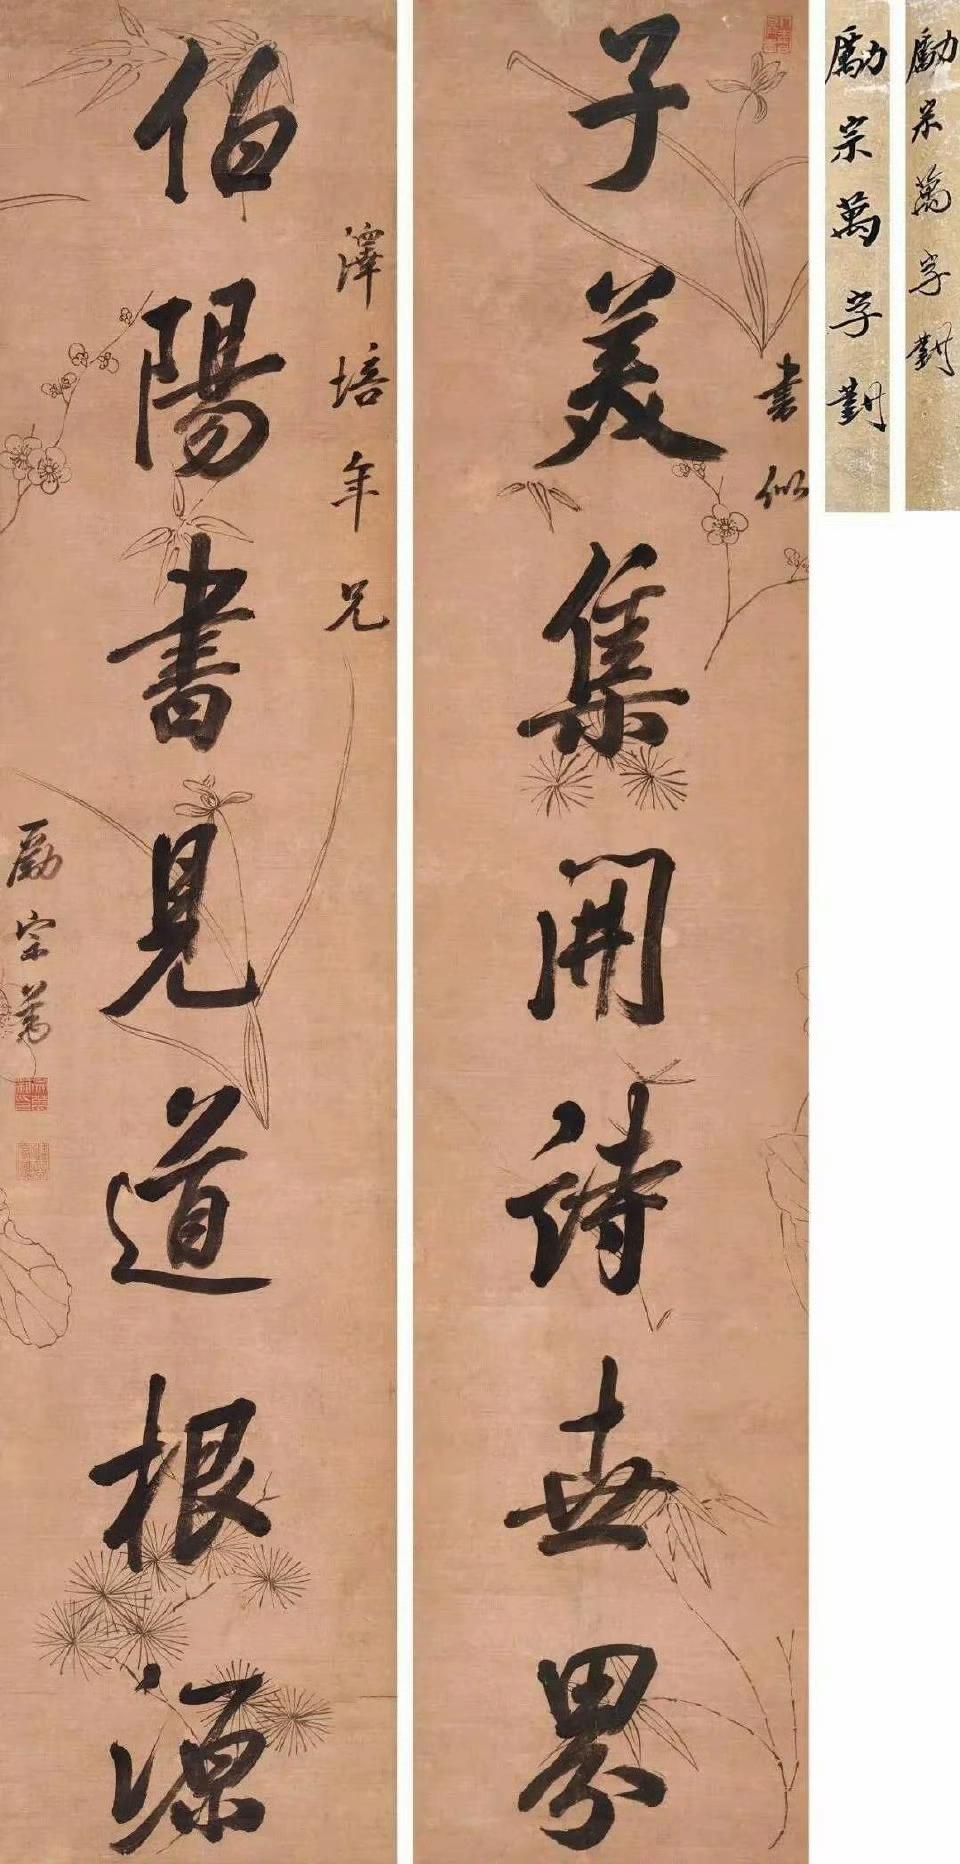 勵宗萬字對
勵宗萬字對
書似
子美集開詩世界
澤培年兄
伯陽書見道根源
勵宗萬